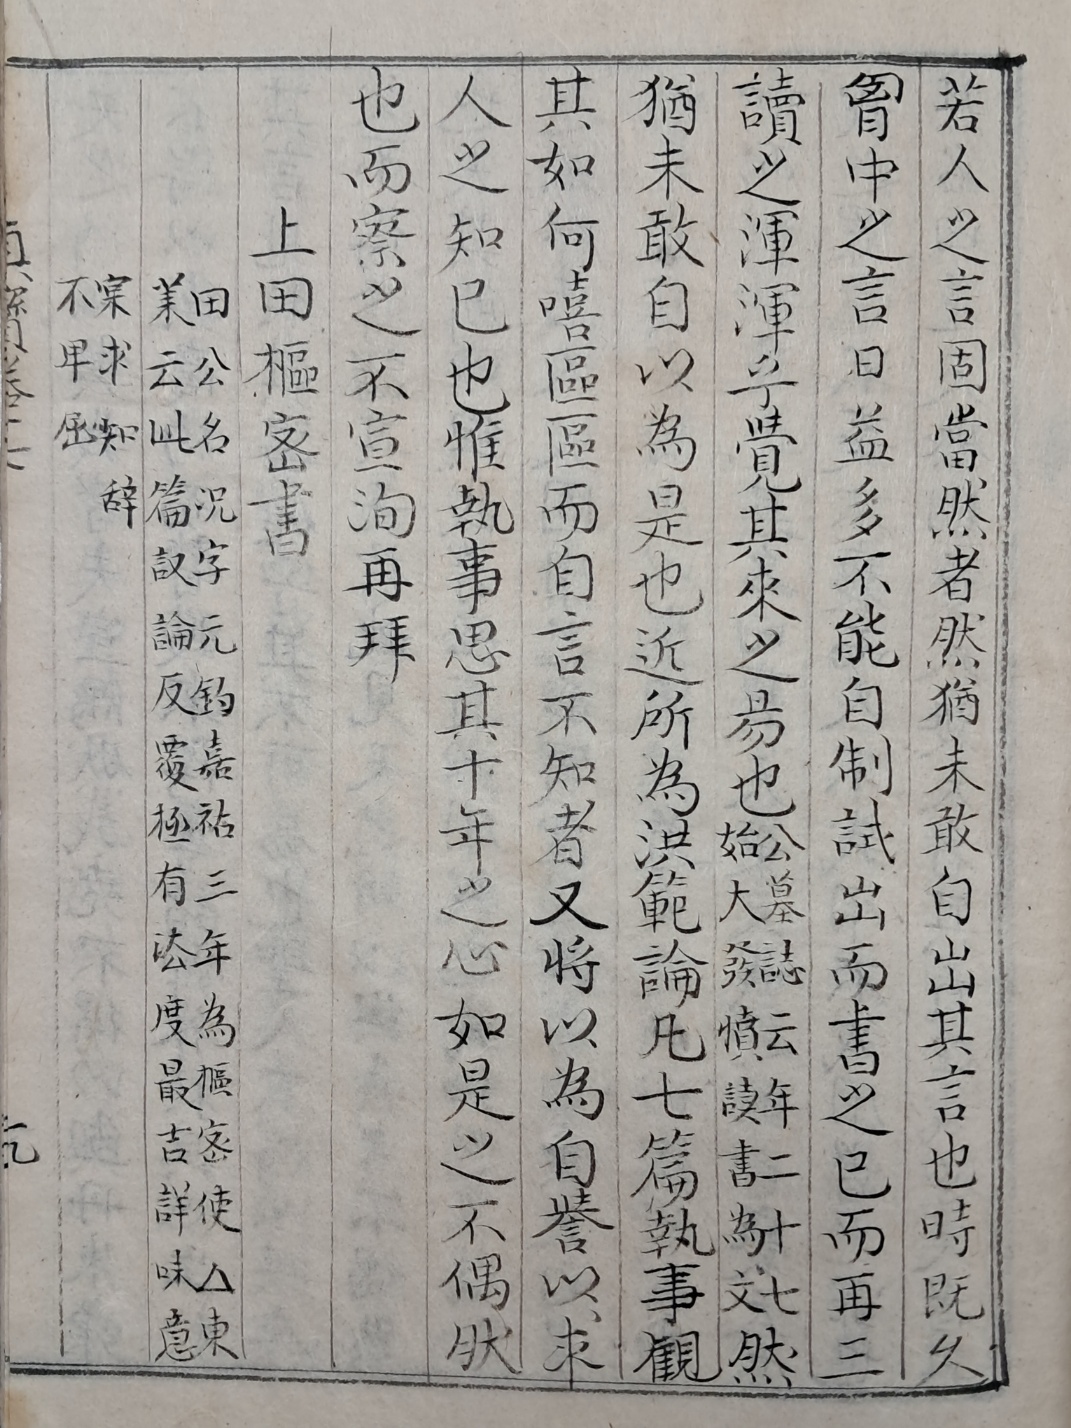 若人之言固當然者然猶未敢自出其言也時既久
胷中之言日益多不能自制試出而書之已而再三
讀之渾渾乎覺其來之昜也公墓誌云年二十七然
始大發憤讀書為文
猶未敢自以為是也近所為洪範論凡七篇執事觀
其如何嘻區區而自言不知者又將以為自譽以求
人之知已也惟執事思其十年之心如是之不偶然
也而察之不宣洵再拜
上田樞密書
田公名況字元鈞嘉祐三年為樞密使△東
萊云此篇議論反覆極有法度最吉詳味意
宲求知辞
不甲屈